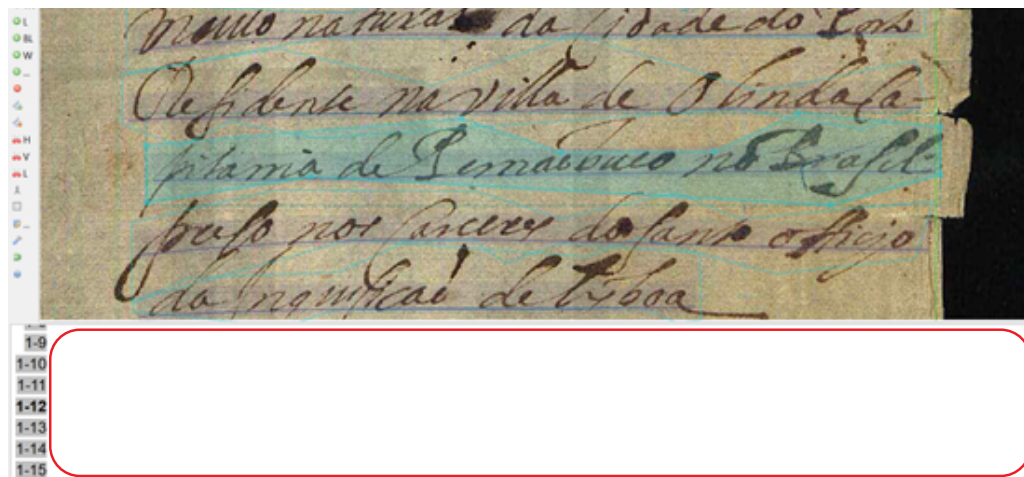 L
BL
W
...
H
V
L
...
natural da Cidade do Porto
Residente na villa de Olinda Ca-
pitania de Pernãobuco no Brasil
preso nos Carceres do santo officio
da Inquisicaõ de Lisboa
1-9
1-10
1-11
1-12
1-13
1-14
1-15